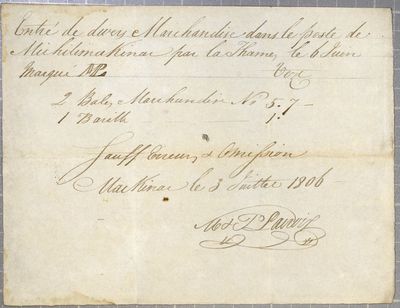 Entré de divers Marchandise dans le poste de
Michilimakinac par la Thames le 6 Juin
Marqué
2 Bales Marchandise No 5.7 —
1 Barill — 1.
Sauff Erreur & Omission
Makinac le 3 Juillet 1806